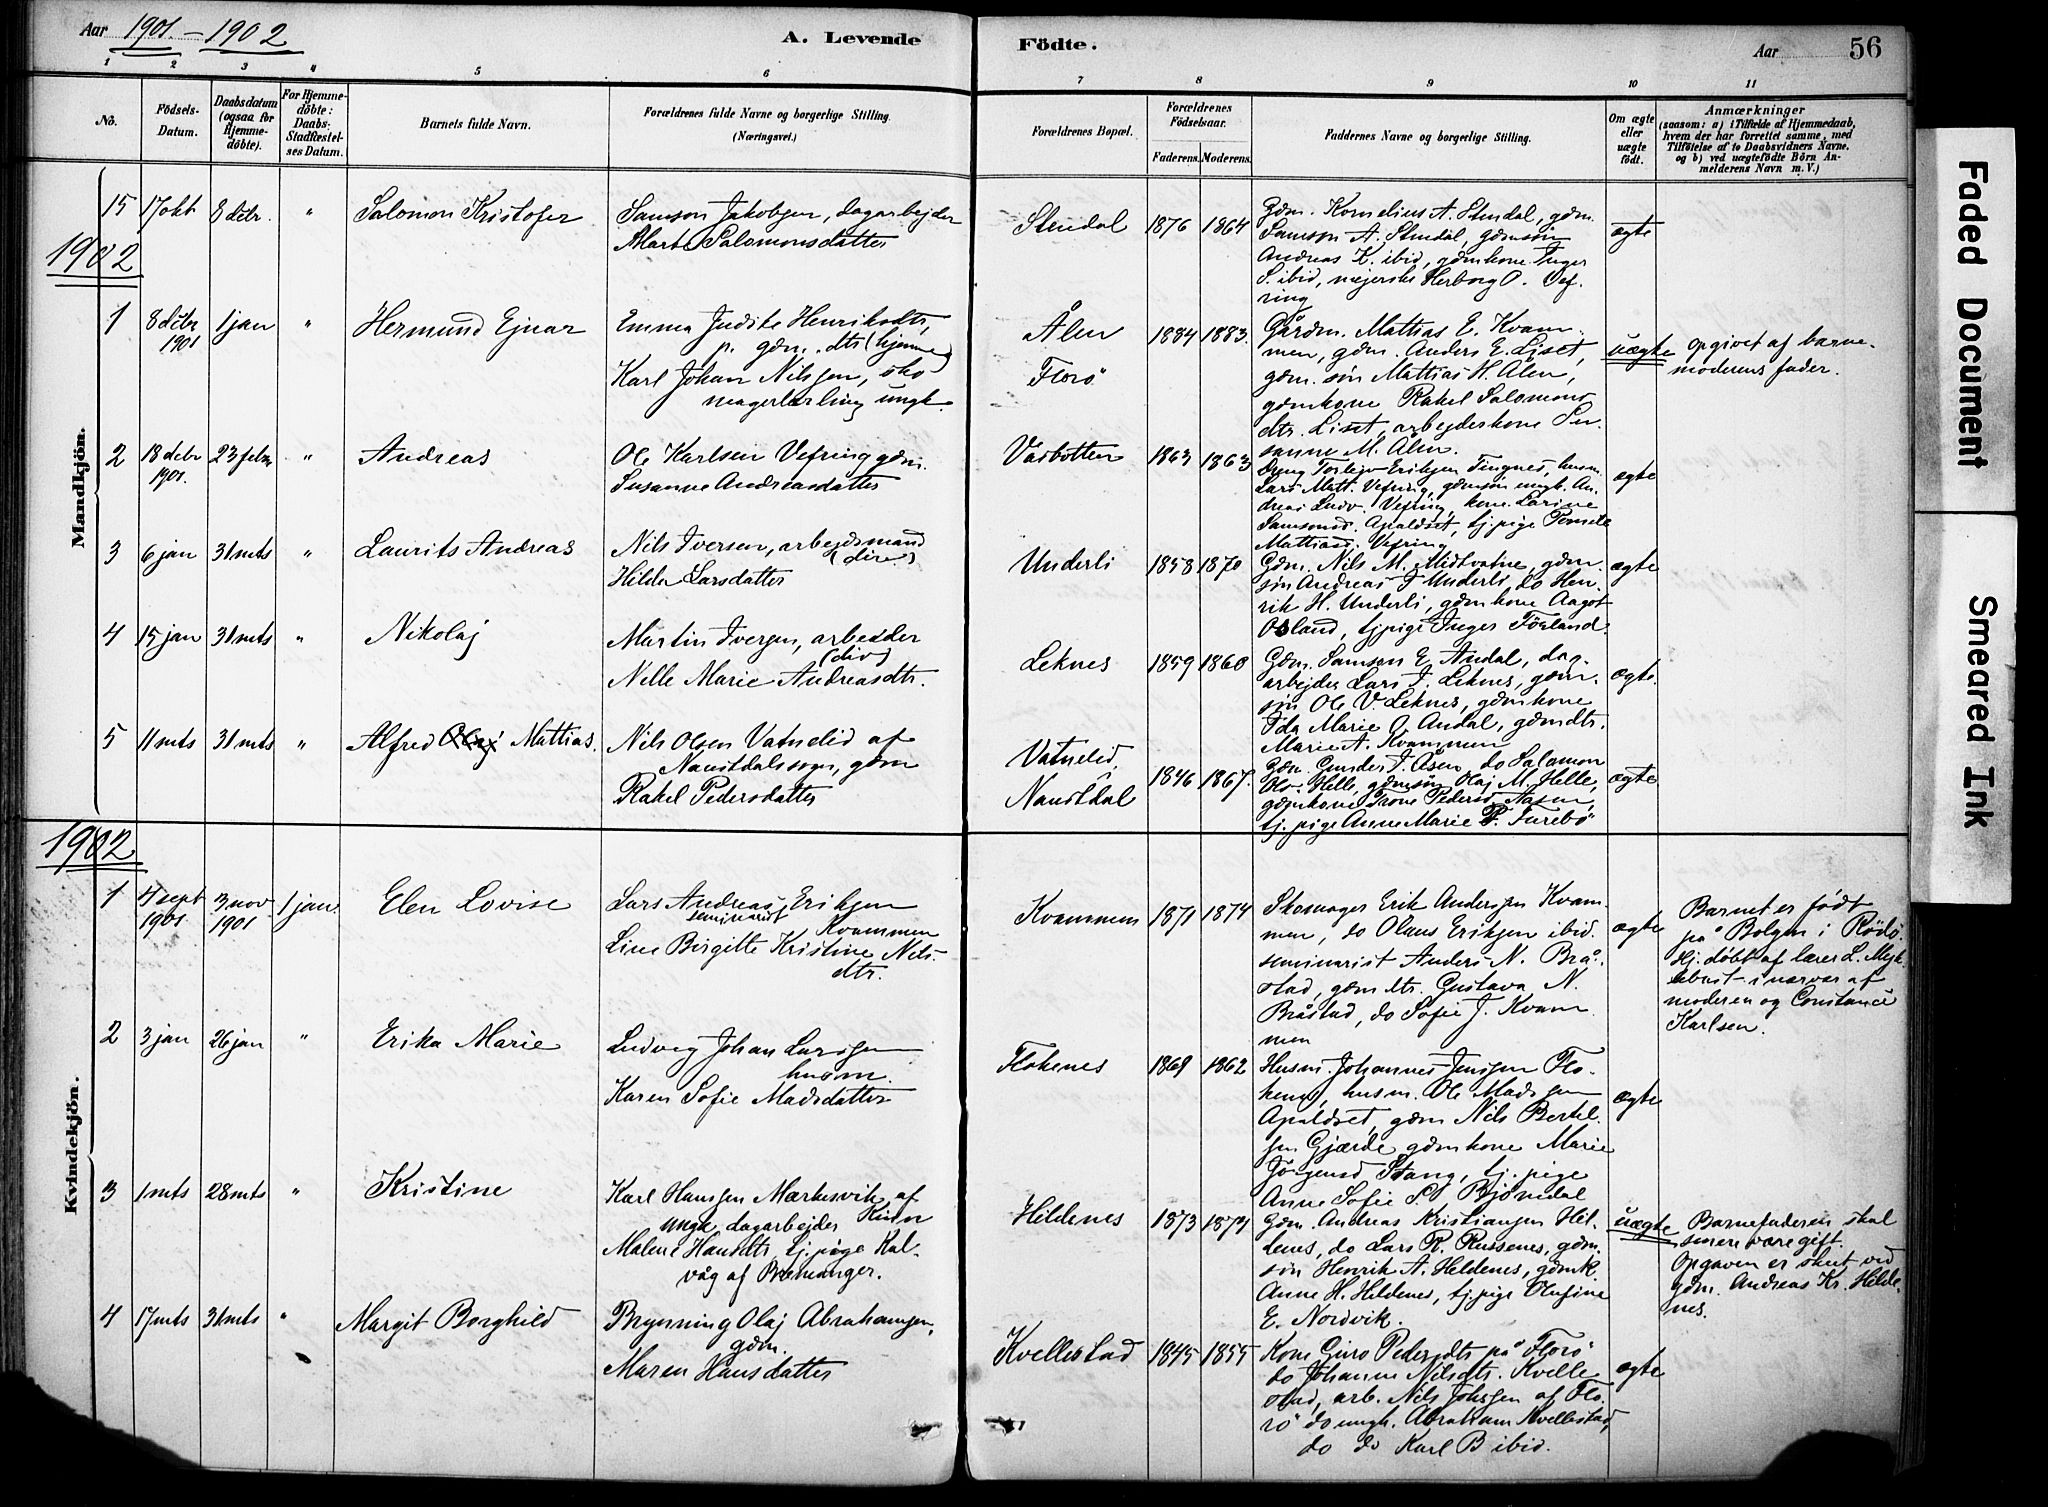 Aar 1901.-1902
A. Levende
Födte.
Aar
56
1 2 3 4 5 6 7 8 9 10 11
No.
Födsels-Datum.
Daabsdatum (ogsaa for Hjemme-döbte).
For Hjemme-döbte: Daabs-Stadfæstel-ses Datum.
Barnets fulde Navn.
Forældrenes fulde Navne og borgerlige Stilling.
(Næringsvei.)
Forældrenes Bopæl.
Forældrenes Födselsaar.
Faderens. Moderens.
Faddernes Navne og borgerlige Stilling.
Om ægte eller uægte födt.
Anmærkninger
(saasom: a) i Tilfælde af Hjemmedaab,
hvem der har forrettet samme, med
Tilföielse af to Daabsvidners Navne.
og b) ved uægtefödte Börn An-
melderens Navn m. V.)
Mandkjön.
15 17 okt 8 debr. " Salomon Kristofer
Samson Jakobsen, dagarbejder
Marte Salomonsdatter
Stendal 1876 1864
Gdm. Kornelius A. Stendal, gdm.
Samson A. Stendal, gdmsön
Andreas K. ibid, gdmkone Inger
S. ibid, mejerske Herborg O. Vef-
ring
ægte
1902
1 8 debr 1901 1 jan " Hermund Ejnar
Emma Judite Henriksdtr,
p. gdm. dtr (hjemme)
Karl Johan Nilsen, sko
magerlærling ungk.
Ålen
Florö
1884 1883.
Gårdm. Mattias E. Kvam-
men, gdm. Anders E. Liset,
gdm. sön Mattias H. Ålen,
gdmkone Rakel Salomons
dtr. Liset, arbejderkone Su-
sanne M. Ålen.
uægte
opgivet af barne-
moderens fader.
2 18 debr 1901. 23 febr " Andreas
Ole Karlsen Vefring gdm.
Susanne Andreasdatter
Vasbotten 1863 1863
Dreng Torlejv Eriksen Tingnes, husm.
Lars Matt. Vefring, gdmsön ungk. An-
dreas Ludv. Vefring, kone Larine
Samsonsd. Apaldset, tj.pige Pernele
Mattiasd. Vefring
ægte
3 6 jan 31 mts " Laurits Andreas
Nils Iversen, arbejdsmand
(div.)
Hilda Larsdatter
Underli 1858 1870
Gdm. Nils M. Midtvatne, gdm-
sön Andreas I Underli, do Hen-
rik H. Underli, gdmkone Aagot
Osland, tjpige Inger Förland.
ægte
4 15 jan 31 mts " Nikolaj
Martin Iversen, arbejder
(div)
Nelle Marie Andreasdtr.
Leknes 1859 1860
Gdm. Samson E. Andal, dag-
arbejder Lars I. Leknes, gdm-
sön Ole V. Leknes, gdmkone
Ida Marie O. Andal, gdmdtr.
Marie A. Kvammen
ægte.
5 11 mts 31 mts " Alfred Olaj Mattias.
Nils Olsen Vatnelid af
Naustdalssogn, gdm
Rakel Pedersdatter
Vatnelid,
Naustdal
1846 1867.
Gdm. Gunder I. Åsen, do Salamon
Ols. Helle, gdmsön Olaj M. Helle,
gdmkone Trone Pedersd. Aasen,
tj.pige Anne Marie P. Furebö
ægte.
1902
Kvindekjön.
1 4 sept 1901 3 nov 1901 1 jan. Elen Lovise
Lars Andreas Eriksen
seminarist Kvammen
Line Birgitte Kristine Nils-
dtr.
Kvammen 1871 1874
Skomager Erik Andersen Kvam-
men, do Olaus Eriksen ibid.
seminarist Anders N. Brå-
stad, gdm dtr. Gustava N.
Bråstad, do Sofie J. Kvam
men
ægte
Barnet er født
på Bolgen i Rödö.
Hj. döbt af lærer L. Myk-
lebust i nærvær af
moderen og Constance
Karlsen.
2 3 jan 26 jan " Erika Marie
Ludvig Johan Larsen
husm.
Karen Sofie Madsdatter
Flokenes 1869 1862
Husm. Johannes Jensen Flo-
kenes, husm. Ole Madssen
Apaldset, gdm Nils Bertel-
sen Gjærde, gdmkone Marie
Jörgensd Stang, tj. pige
Anne Sofie S. Björndal
ægte
3 1 mts 28 mts " Kristine
Karl Hansen Markusvik af
ungk. dagarbejder Kinn
Malene Hansdtr, tj.pige Kal-
våg af Bremanger.
Hildenes 1873 1874
Gdm. Andreas Kristiansen Hil-
denes, do Lars R. Russenes, gdm.
sön Henrik A. Hildenes, gdmk.
Anne H. Hildenes, tj.pige Olufine
E. Nordvik.
uægte
Barnefaderen skal
senere være gift.
Opgaven er skeet ved
gdm. Andreas Kr. Hilde-
nes.
4 17 mts 31 mts " Margit Borghild
Brynning Olaj Abrahamsen,
gdm.
Maren Hansdatter
Kvellestad 1845 1855
Kone Guro Pedersdtr på Florö
do Johanne Nilsdtr. Kvelle
stad, arb. Nils Johssen af Flo-
rö do ungk. Abraham Kvellestad,
do do Karl B ibid.
ægte
Faded Document
Smeared Ink